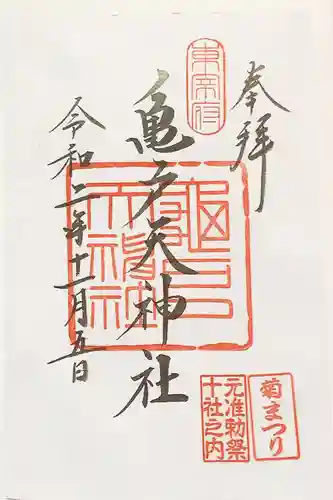 奉拝
東宰府
亀戸天神社
令和二年十一月五日
亀戸天神社
菊まつり
元准勅祭
十社之内